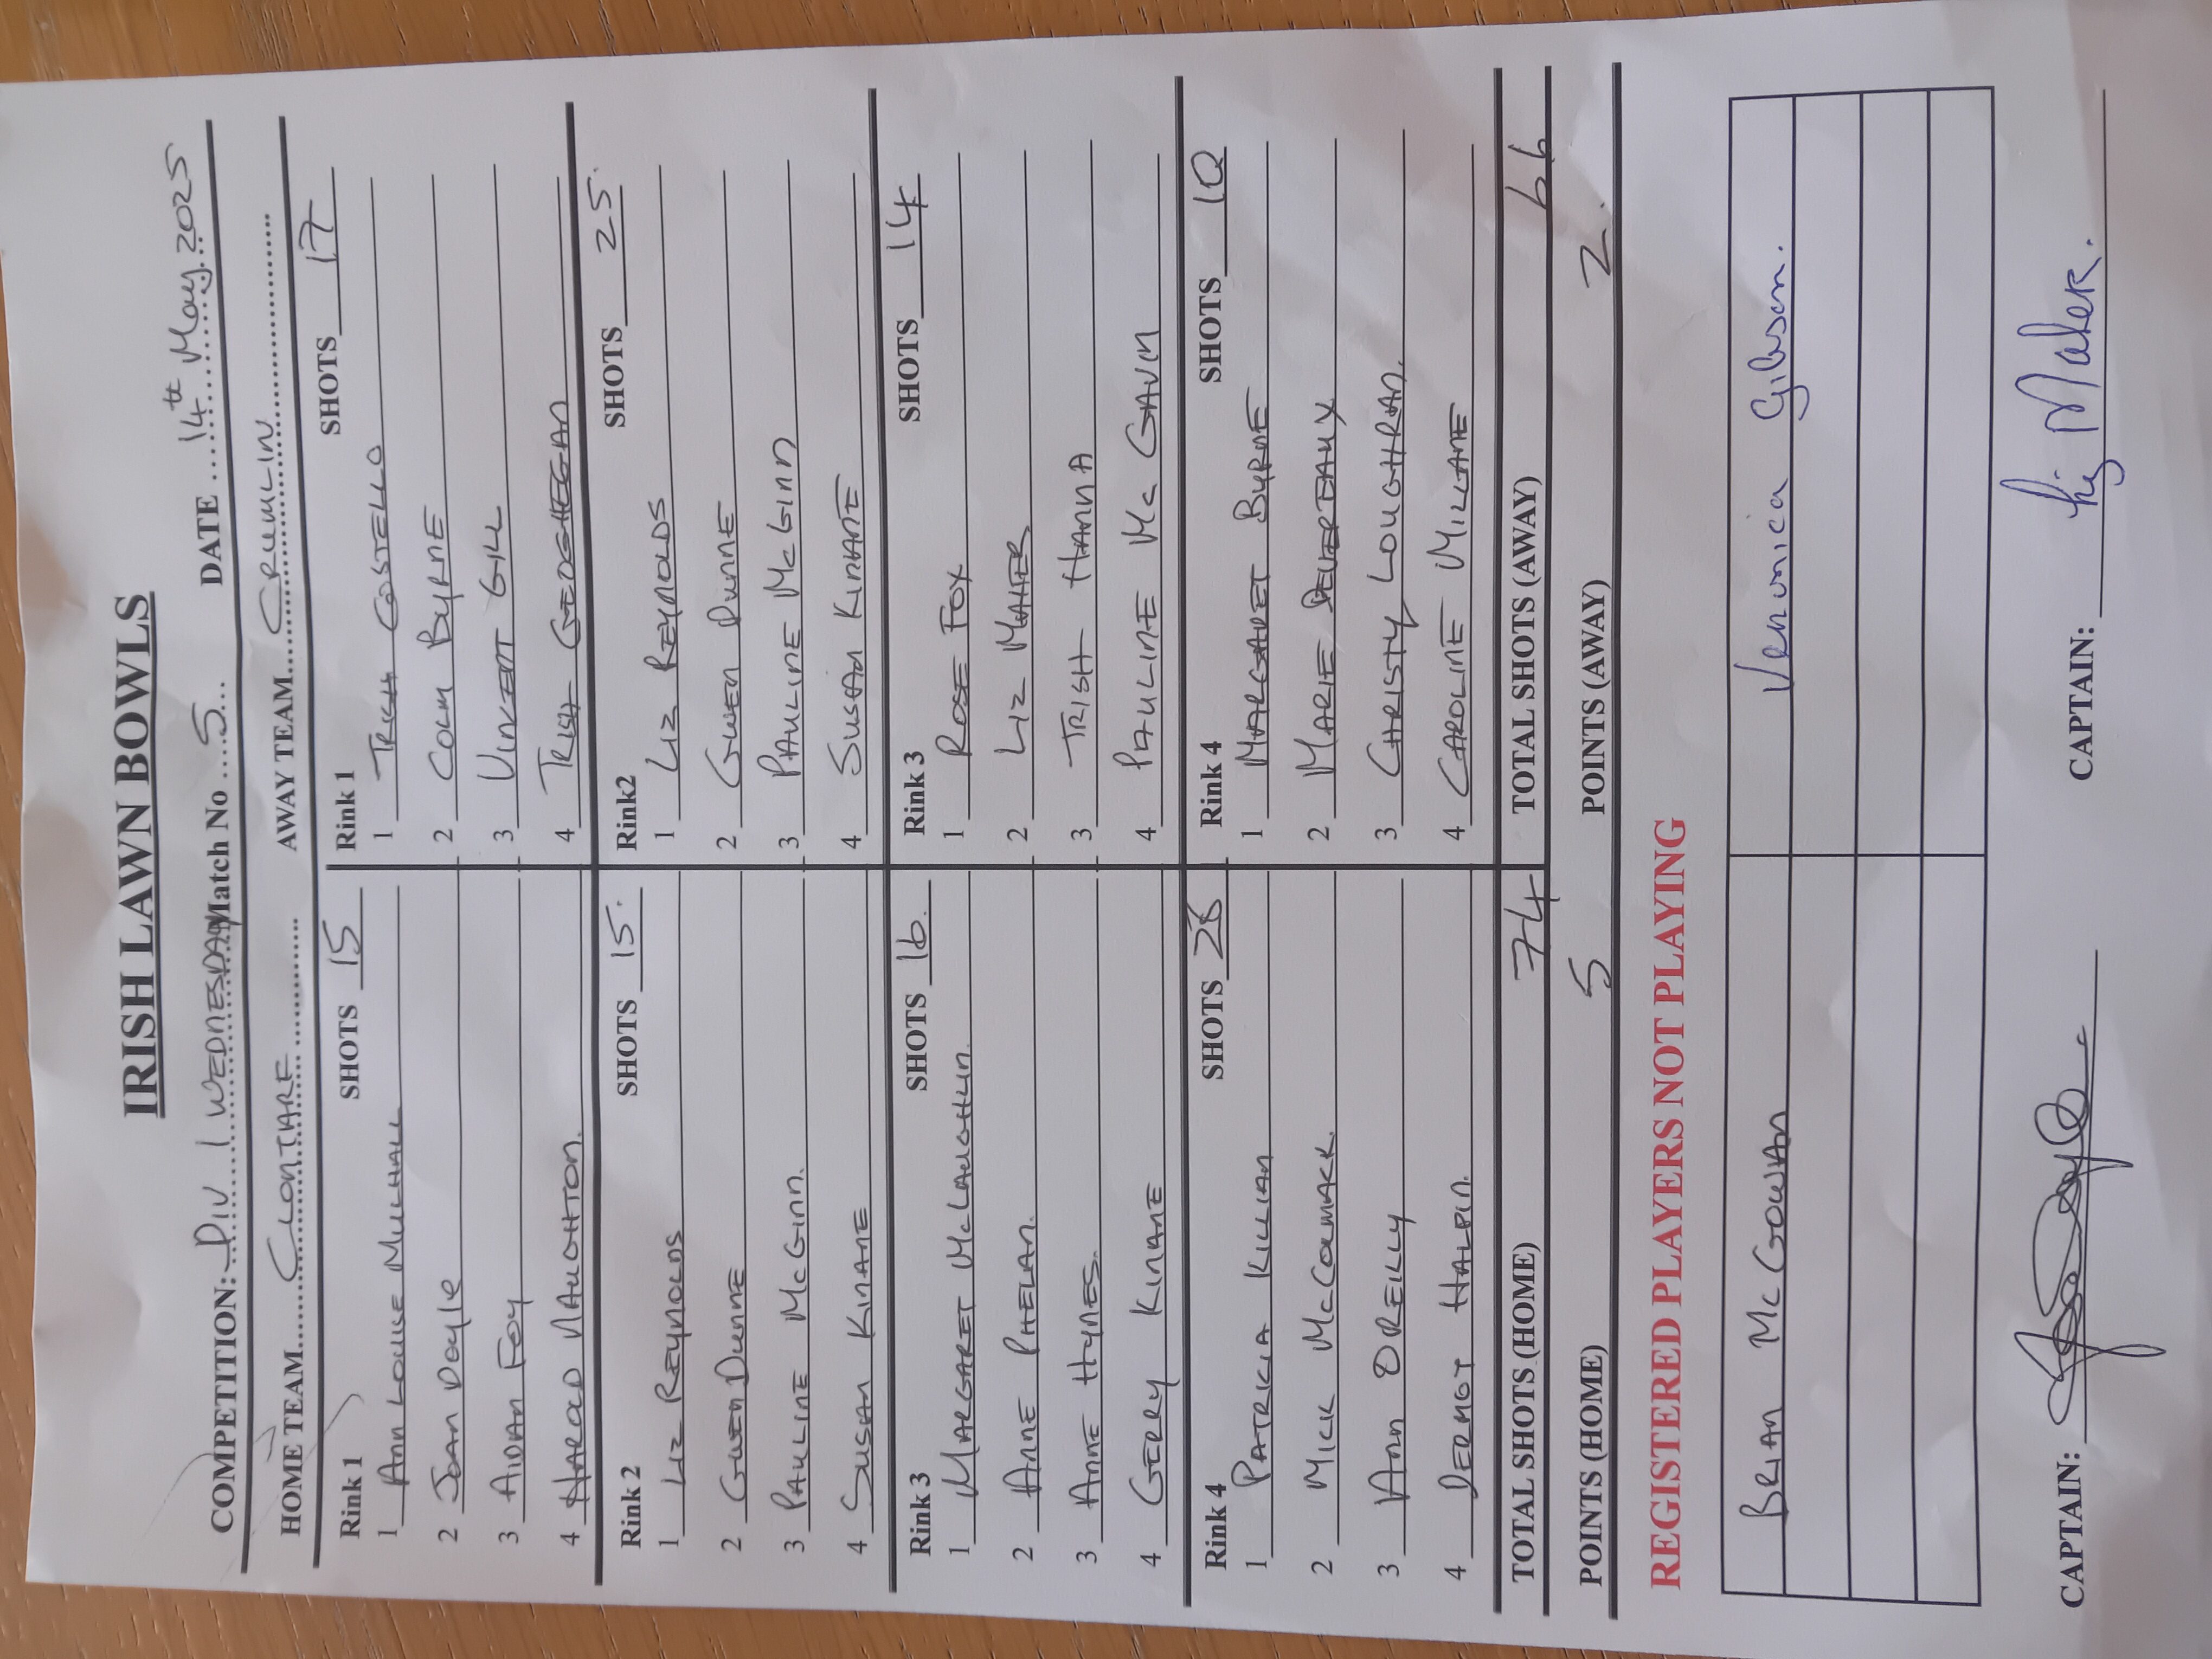 IRISH LAWN BOWLS
COMPETITION: DIV 1 WEDNESDAY Match No 5 DATE 14th May 2025
HOME TEAM CLONTARF AWAY TEAM CRUMLIN
Rink 1 SHOTS 15 Rink 1 SHOTS 17
1 ANN LOUISE MULHALL 1 TRISH COSTELLO
2 JOAN DOYLE 2 COLM BYRNE
3 AIDAN FOY 3 VINCENT GILL
4 HAROLD NAUGHTON. 4 TRISH GEOGHEGAN
Rink 2 SHOTS 15. Rink2 SHOTS 25.
1 LIZ REYNOLDS 1 LIZ REYNOLDS
2 GWEN DUNNE 2 GWEN DUNNE
3 PAULINE McGINN. 3 PAULINE McGINN
4 SUSAN KINANE 4 SUSAN KINANE
Rink 3 SHOTS 16. Rink 3 SHOTS 14
1 MARGARET McLAUGHLIN. 1 ROSE FOX
2 ANNE PHELAN. 2 LIZ MAHER
3 ANNE HYNES. 3 TRISH HANNA
4 GERRY KINANE 4 PAULINE Mc GAVIN
Rink 4 SHOTS 28 Rink 4 SHOTS 10
1 PATRICIA KILLIAN 1 MARGARET BYRNE
2 MICK McCORMACK. 2 MARIE DEVEREAUX
3 ANN O'REILLY 3 CHRISTY LOUGHRAN.
4 DERMOT HALPIN. 4 CAROLINE MILLANE
TOTAL SHOTS (HOME) 74 TOTAL SHOTS (AWAY) 66
POINTS (HOME) 5 POINTS (AWAY) 2.
REGISTERED PLAYERS NOT PLAYING
BRIAN McGOWAN Veronica Gibson.
CAPTAIN: CAPTAIN: Liz Maher.